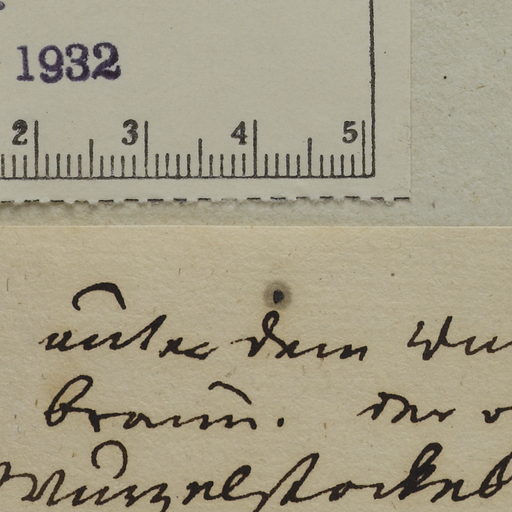 1932
2 3 4 5
unter dem
braun. der
Wurzelstockes